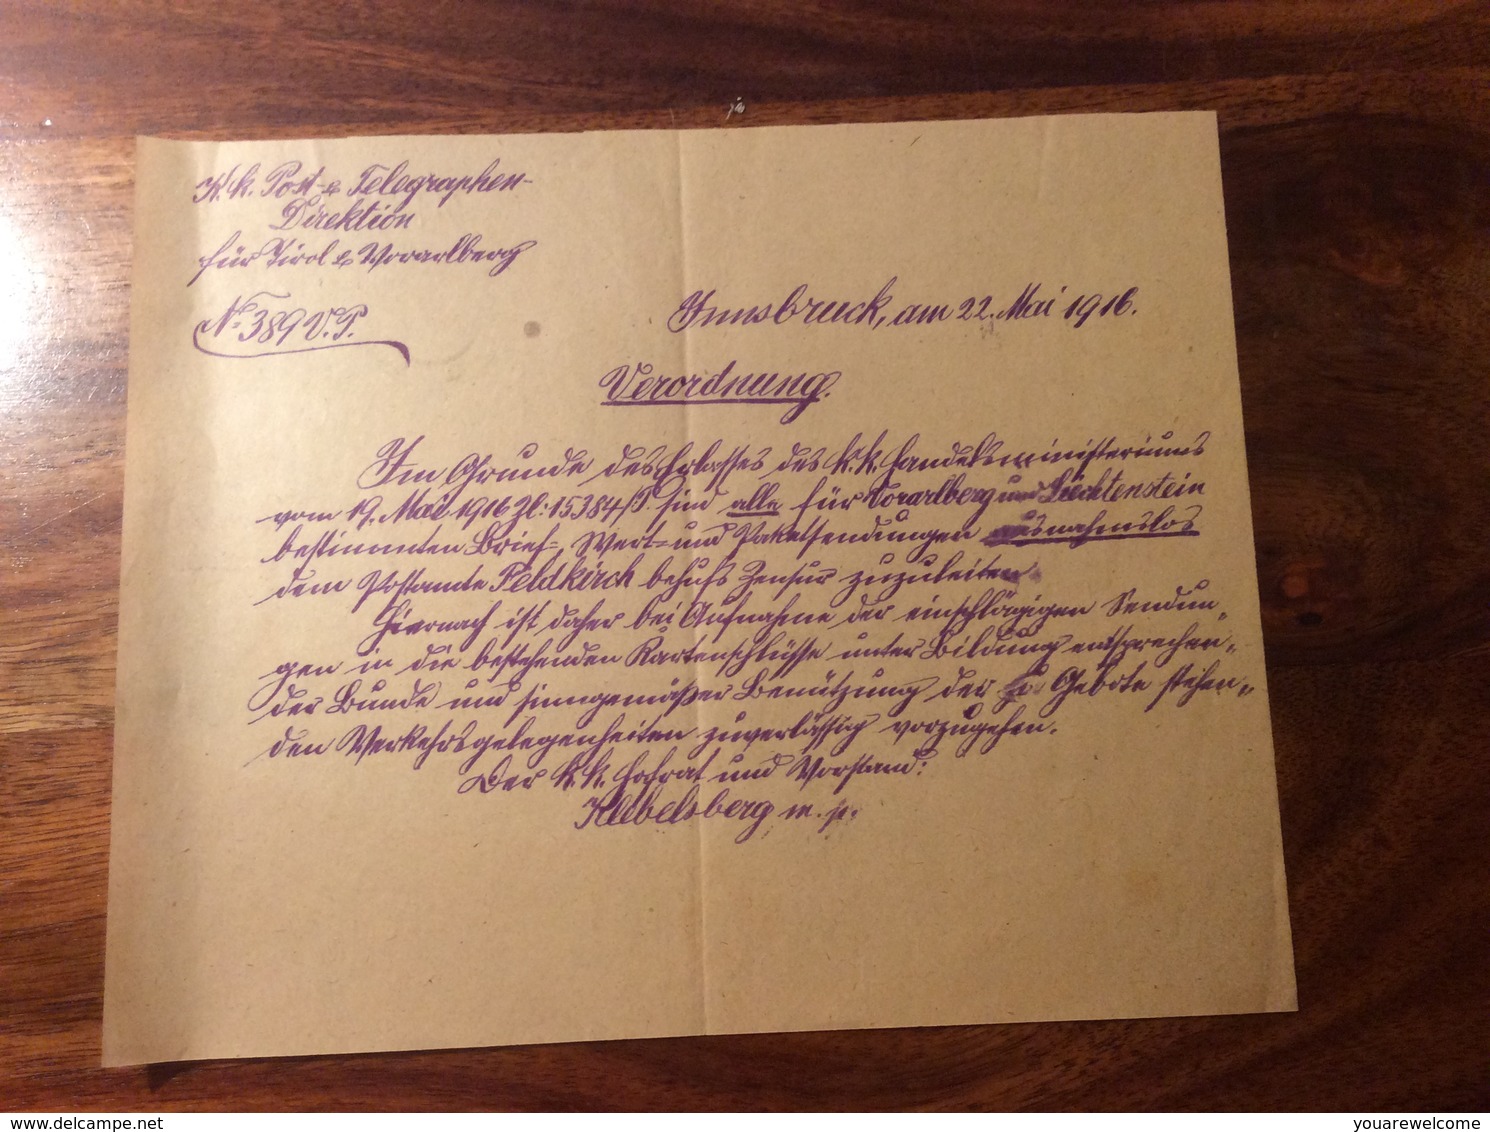 K. k. Post- & Telegraphen-
Direktion
für Tirol & Vorarlberg
No. 389 V.P.
Innsbruck, am 22. Mai 1916.
Verordnung.
Im Grunde des Erlasses des k. k. Handelsministeriums
vom 19. Mai 1916 Zl: 15384/P. sind alle für Vorarlberg und Liechtenstein
bestimmten Brief-, Wert- und Paketsendungen ausnahmslos
dem Postamte Feldkirch behufs Zensur zuzuleiten.
Hiernach ist daher bei Aufnahme der einschlägigen Sendun-
gen in die bestehenden Kartenschlüsse unter Bildung entsprechen-
der Bunde und sinngemäßer Benützung der zu Gebote stehen-
den Verkehrsgelegenheiten zuverlässig vorzugehen.
Der k. k. Hofrat und Vorstand:
Klebelsberg m. p.
delcampe.net
youarewelcome